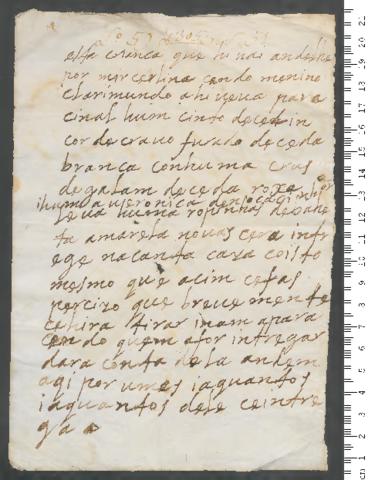 esta criança que hi vai an de lhe
por mir cerlina cendo menino
clarimundo ahi veva para
cinal hum cinto de ceda in
cor de cravo furado de ceda
branca con huma crus
de galam de ceda roxa
i huma veronica de
leva huma de baie
ta amarela novas cera intr
ege na canta caza co isto
mesmo que acim cefas
percizo que breve mente
cehira tirar inam apara
cendo quem afor intregar
dara conta de la an dem
agi por umes iaquantos
iaquantos dele ceintre
ga a